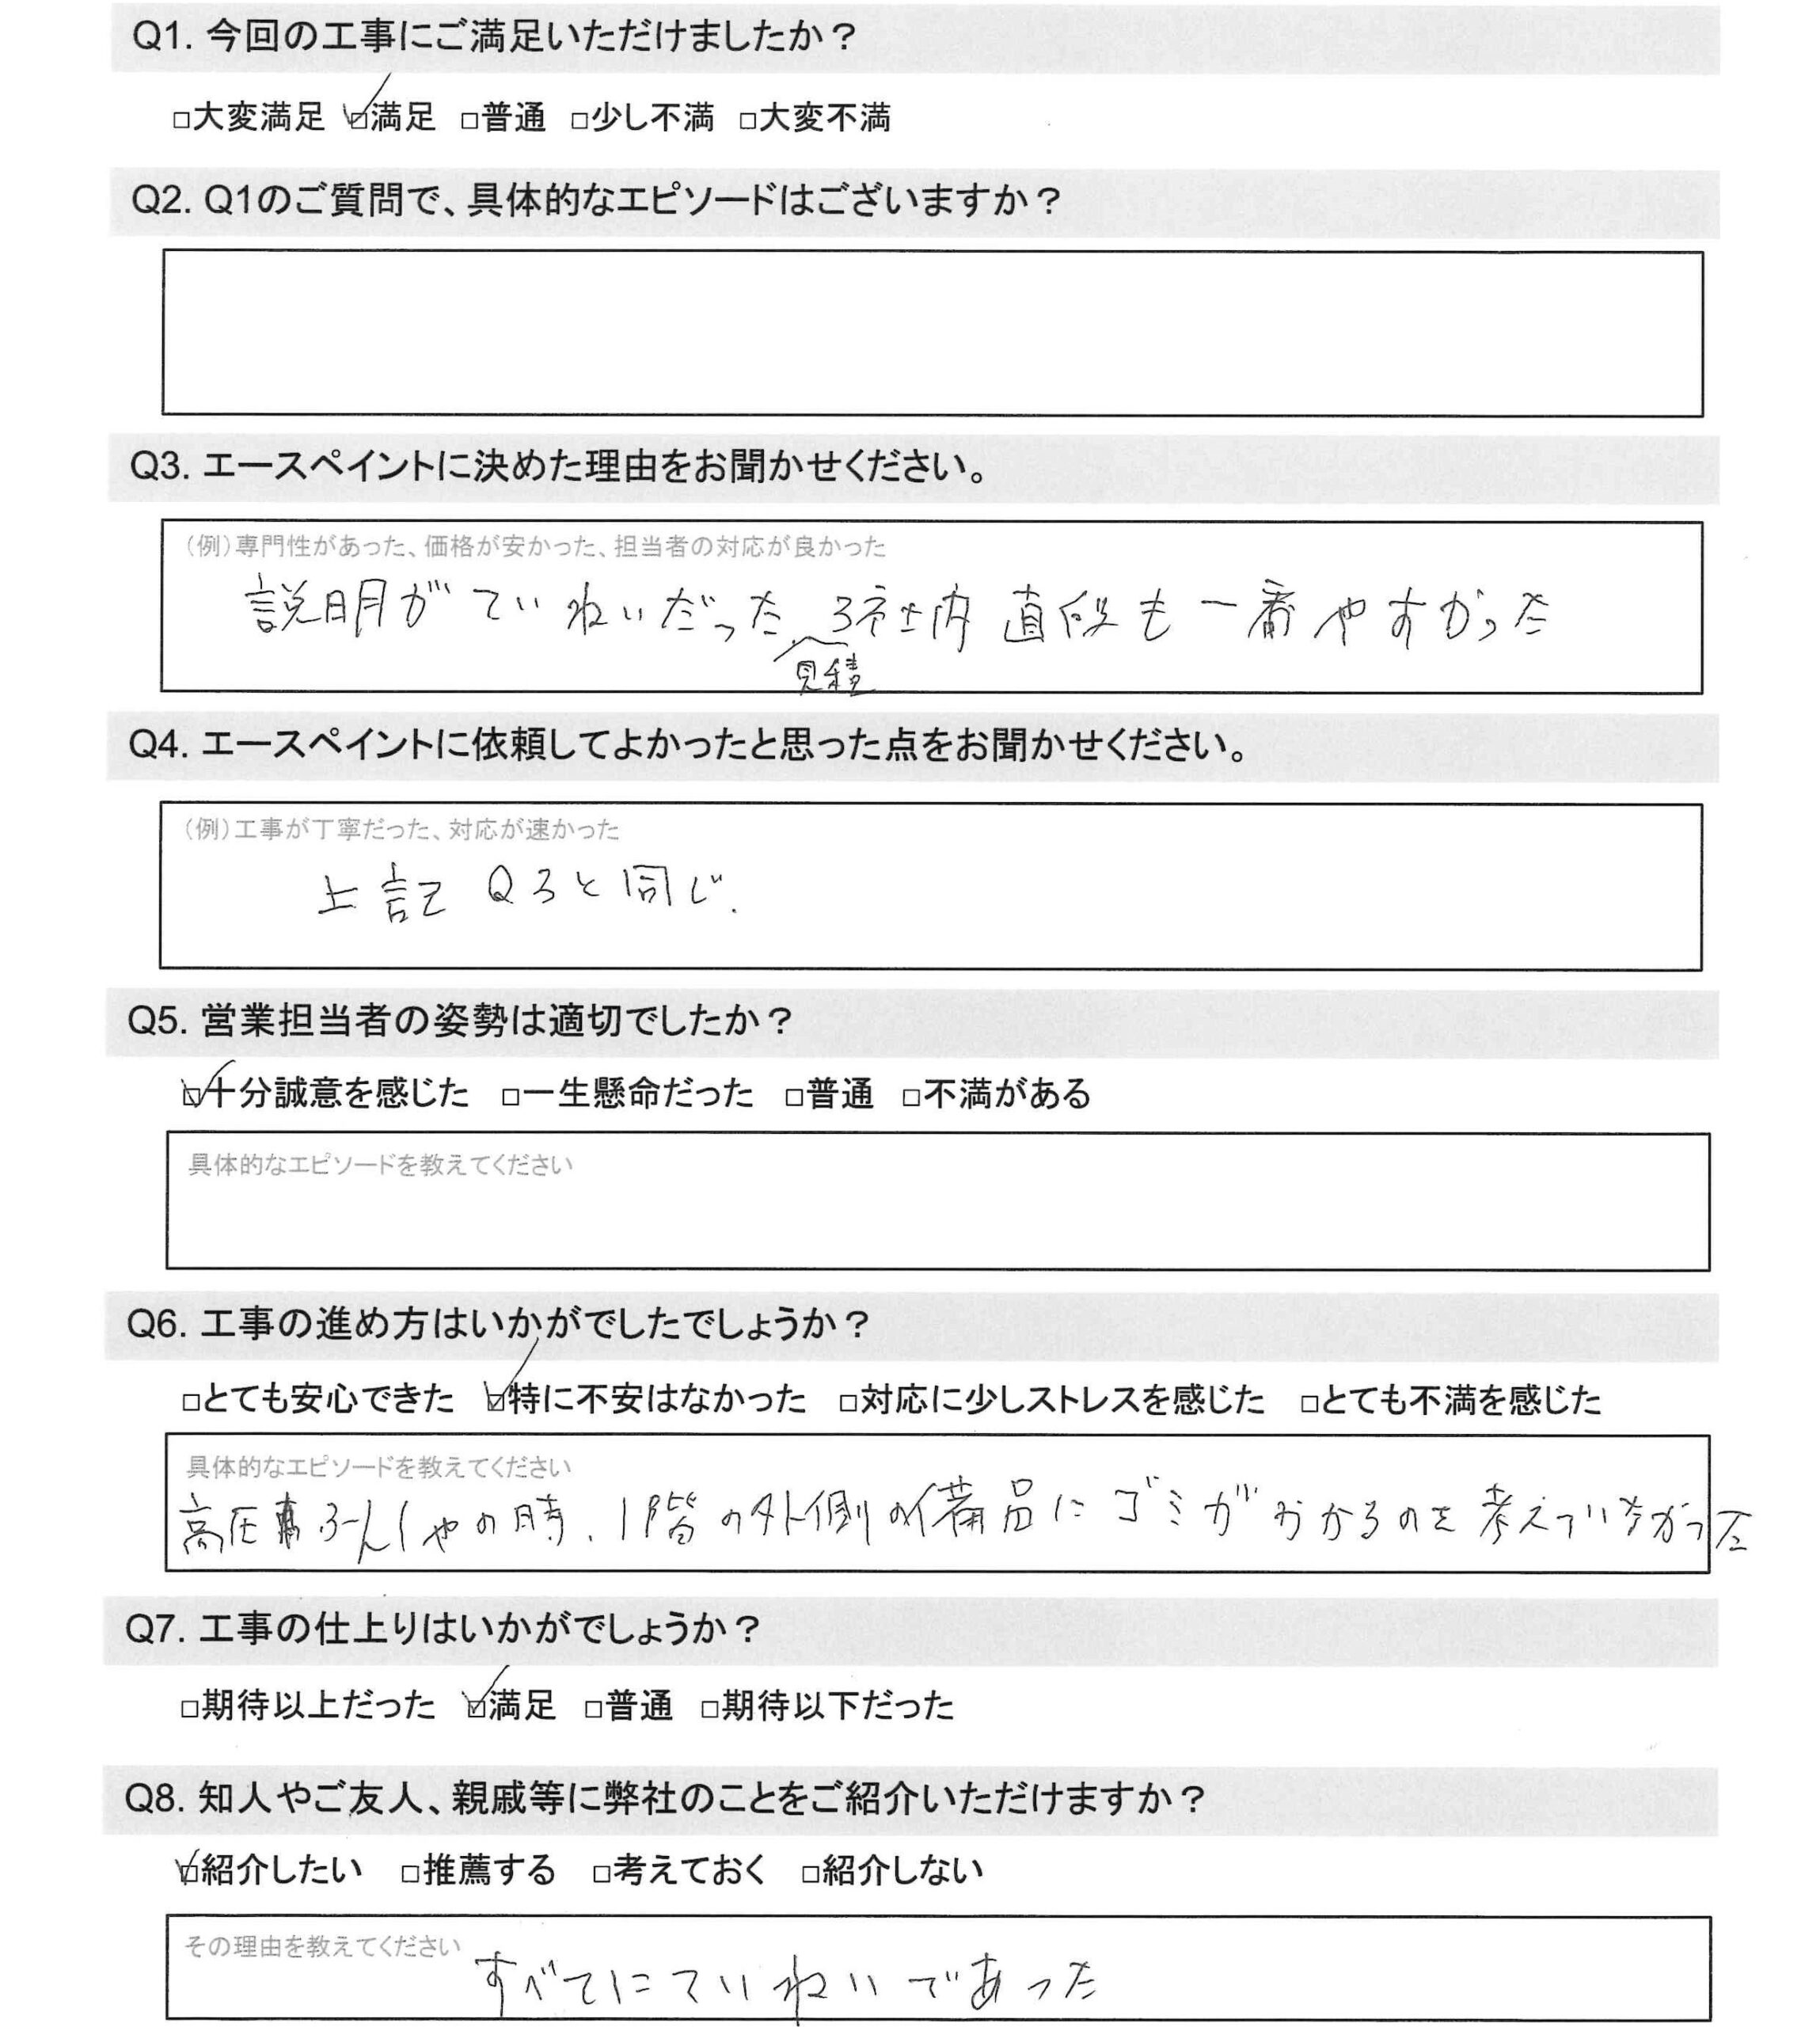 Q1. 今回の工事にご満足いただけましたか？
□大変満足 ☑満足 □普通 □少し不満 □大変不満
Q2. Q1のご質問で、具体的なエピソードはございますか？
Q3. エースペイントに決めた理由をお聞かせください。
（例）専門性があった、価格が安かった、担当者の対応が良かった
説明がていねいだった、3社内 直段も一番やすかった
見積
Q4. エースペイントに依頼してよかったと思った点をお聞かせください。
（例）工事が丁寧だった、対応が速かった
上記 Q3と同じ.
Q5. 営業担当者の姿勢は適切でしたか？
☑十分誠意を感じた □一生懸命だった □普通 □不満がある
具体的なエピソードを教えてください
Q6. 工事の進め方はいかがでしたでしょうか？
□とても安心できた ☑特に不安はなかった □対応に少しストレスを感じた □とても不満を感じた
具体的なエピソードを教えてください
高圧ふんしゃの時、1階の外側の備品にゴミがかかるのを考えていなかった
Q7. 工事の仕上りはいかがでしょうか？
□期待以上だった ☑満足 □普通 □期待以下だった
Q8. 知人やご友人、親戚等に弊社のことをご紹介いただけますか？
☑紹介したい □推薦する □考えておく □紹介しない
その理由を教えてください
すべてにていねいであった